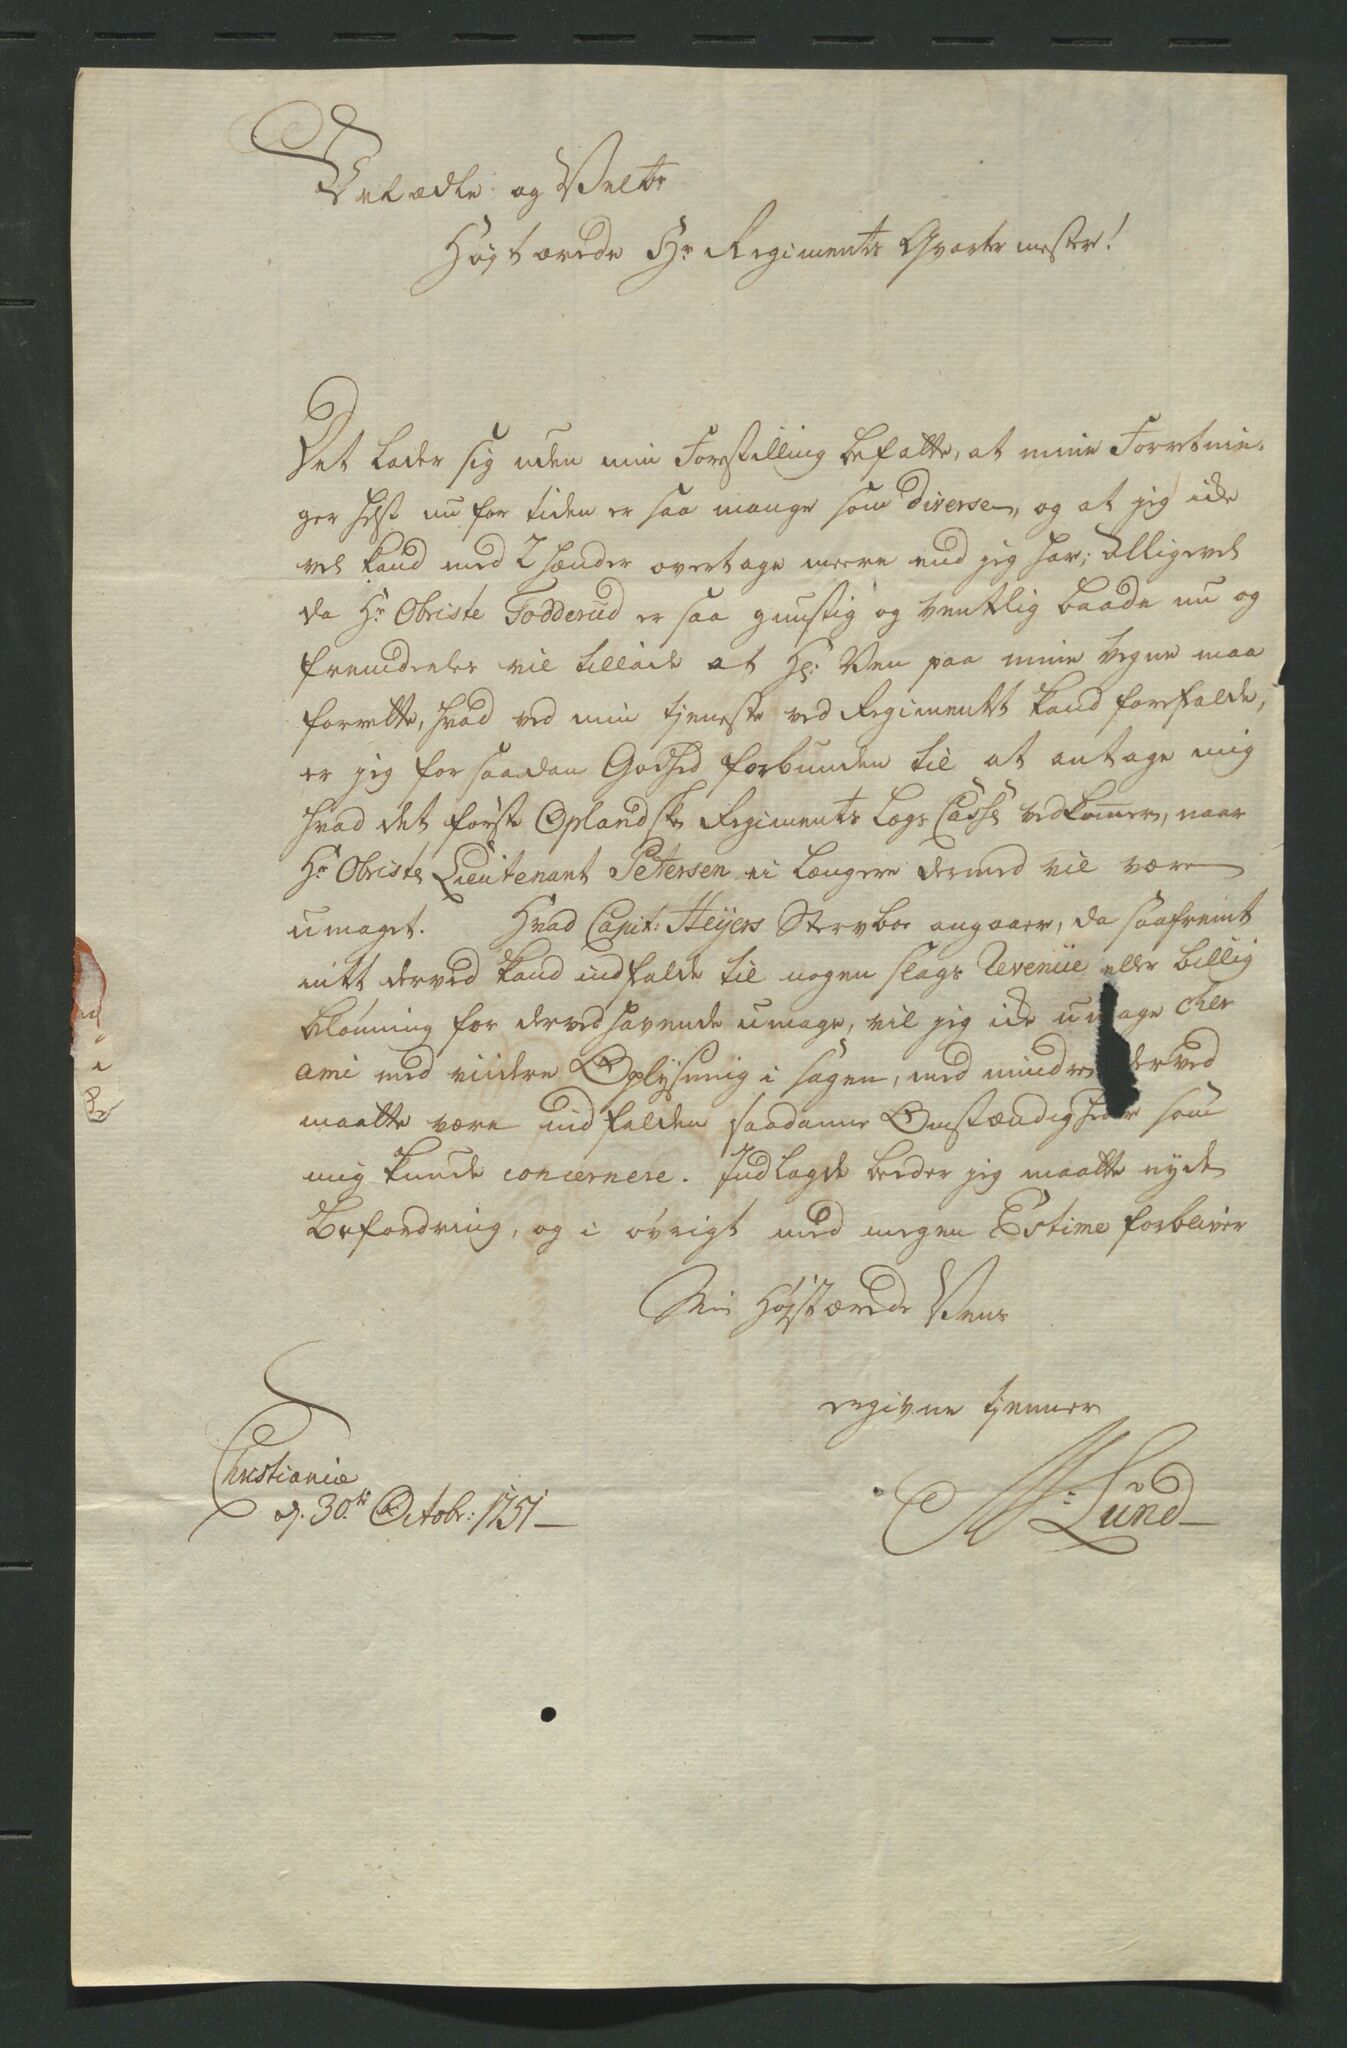 Velædle og Velbr
Høyt ærede Hr Regiments Qvarter mester!
Det lader sig uden min Forestilling befatte, at mine Forretnin-
ger helst nu for tiden er saa mange som diverse, og at jeg icke
vel kand med 2 hænder overtage meere end jeg har; Alligevel
da Hr Obriste Todderud er saa gunstig og ventlig baade nu og
fremdeeles vil tillade at Hr: Ven paa mine vegne maa
forrette, hvad ved min tjeneste ved Regimentet kand forefalde,
er jeg for saadan Godhed forbunden til at antage mig
hvad det første Oplandske Regiments Lags Casse vedkommer, naar
Hr Obriste Lieutenant Petersen ei længere dermed vil være
umaget. Hvad Capit: Heÿers Stervboe angaaer, da saafremt
nitt derved kand indfalde til nogen slags Revenüe eller billig
belønning for derved havende umage, vil jeg icke umage cher
ami med viidere Oplysning i sagen, med mindre derved
maatte være indfalden saadanne Omstændigheder som
mig kunde concernere. Indlagde beder jeg maatte nyde
Befordring, og i øvrigt med megen Estime forbliver
Min Høystærede Vens
Christiania
d. 30te Octobr: 1751
tjenner
Lund